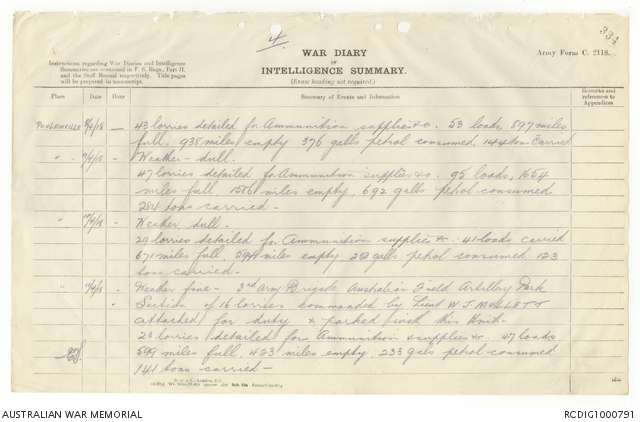 4.
334
WAR DIARY
or
INTELLIGENCE SUMMARY.
(Erase heading not required.)
Army Form C. 2118.
Instructions regarding War Diaries and Intelligence
Summaries are contained in F. S. Regs., Part II.
and the Staff Manual respectively. Title pages
will be prepared in manuscript.
Place Date Hour Summary of Events and Information Remarks and
references to
Appendices
8/4/18 — 43 lorries detailed for Ammunition supplies &c. 53 loads, 897 miles
full, 938 miles empty 376 galls petrol consumed, 144 tons carried
" 9/4/18 - Weather - dull.
47 lorries detailed for Ammunition supplies &c. 95 loads, 1664
miles full 1586 miles empty, 692 galls petrol consumed
284 tons carried -
" 10/4/18 - Weather dull.
29 lorries detailed for Ammunition supplies &c. 41 loads carried
671 miles full, miles empty 212 galls petrol consumed 123
tons carried.
" 11/4/18 - Weather fine - 3rd Army Brigade Australian Field Artillery Park
Section of 16 lorries commanded by Lieut W.J.
attached for duty & parked with this Unit.
lorries detailed for Ammunition supplies &c. 47 loads
599 miles full, 423 miles empty, 233 galls petrol consumed
141 tons carried -
AUSTRALIAN WAR MEMORIAL
RCDIG1000791